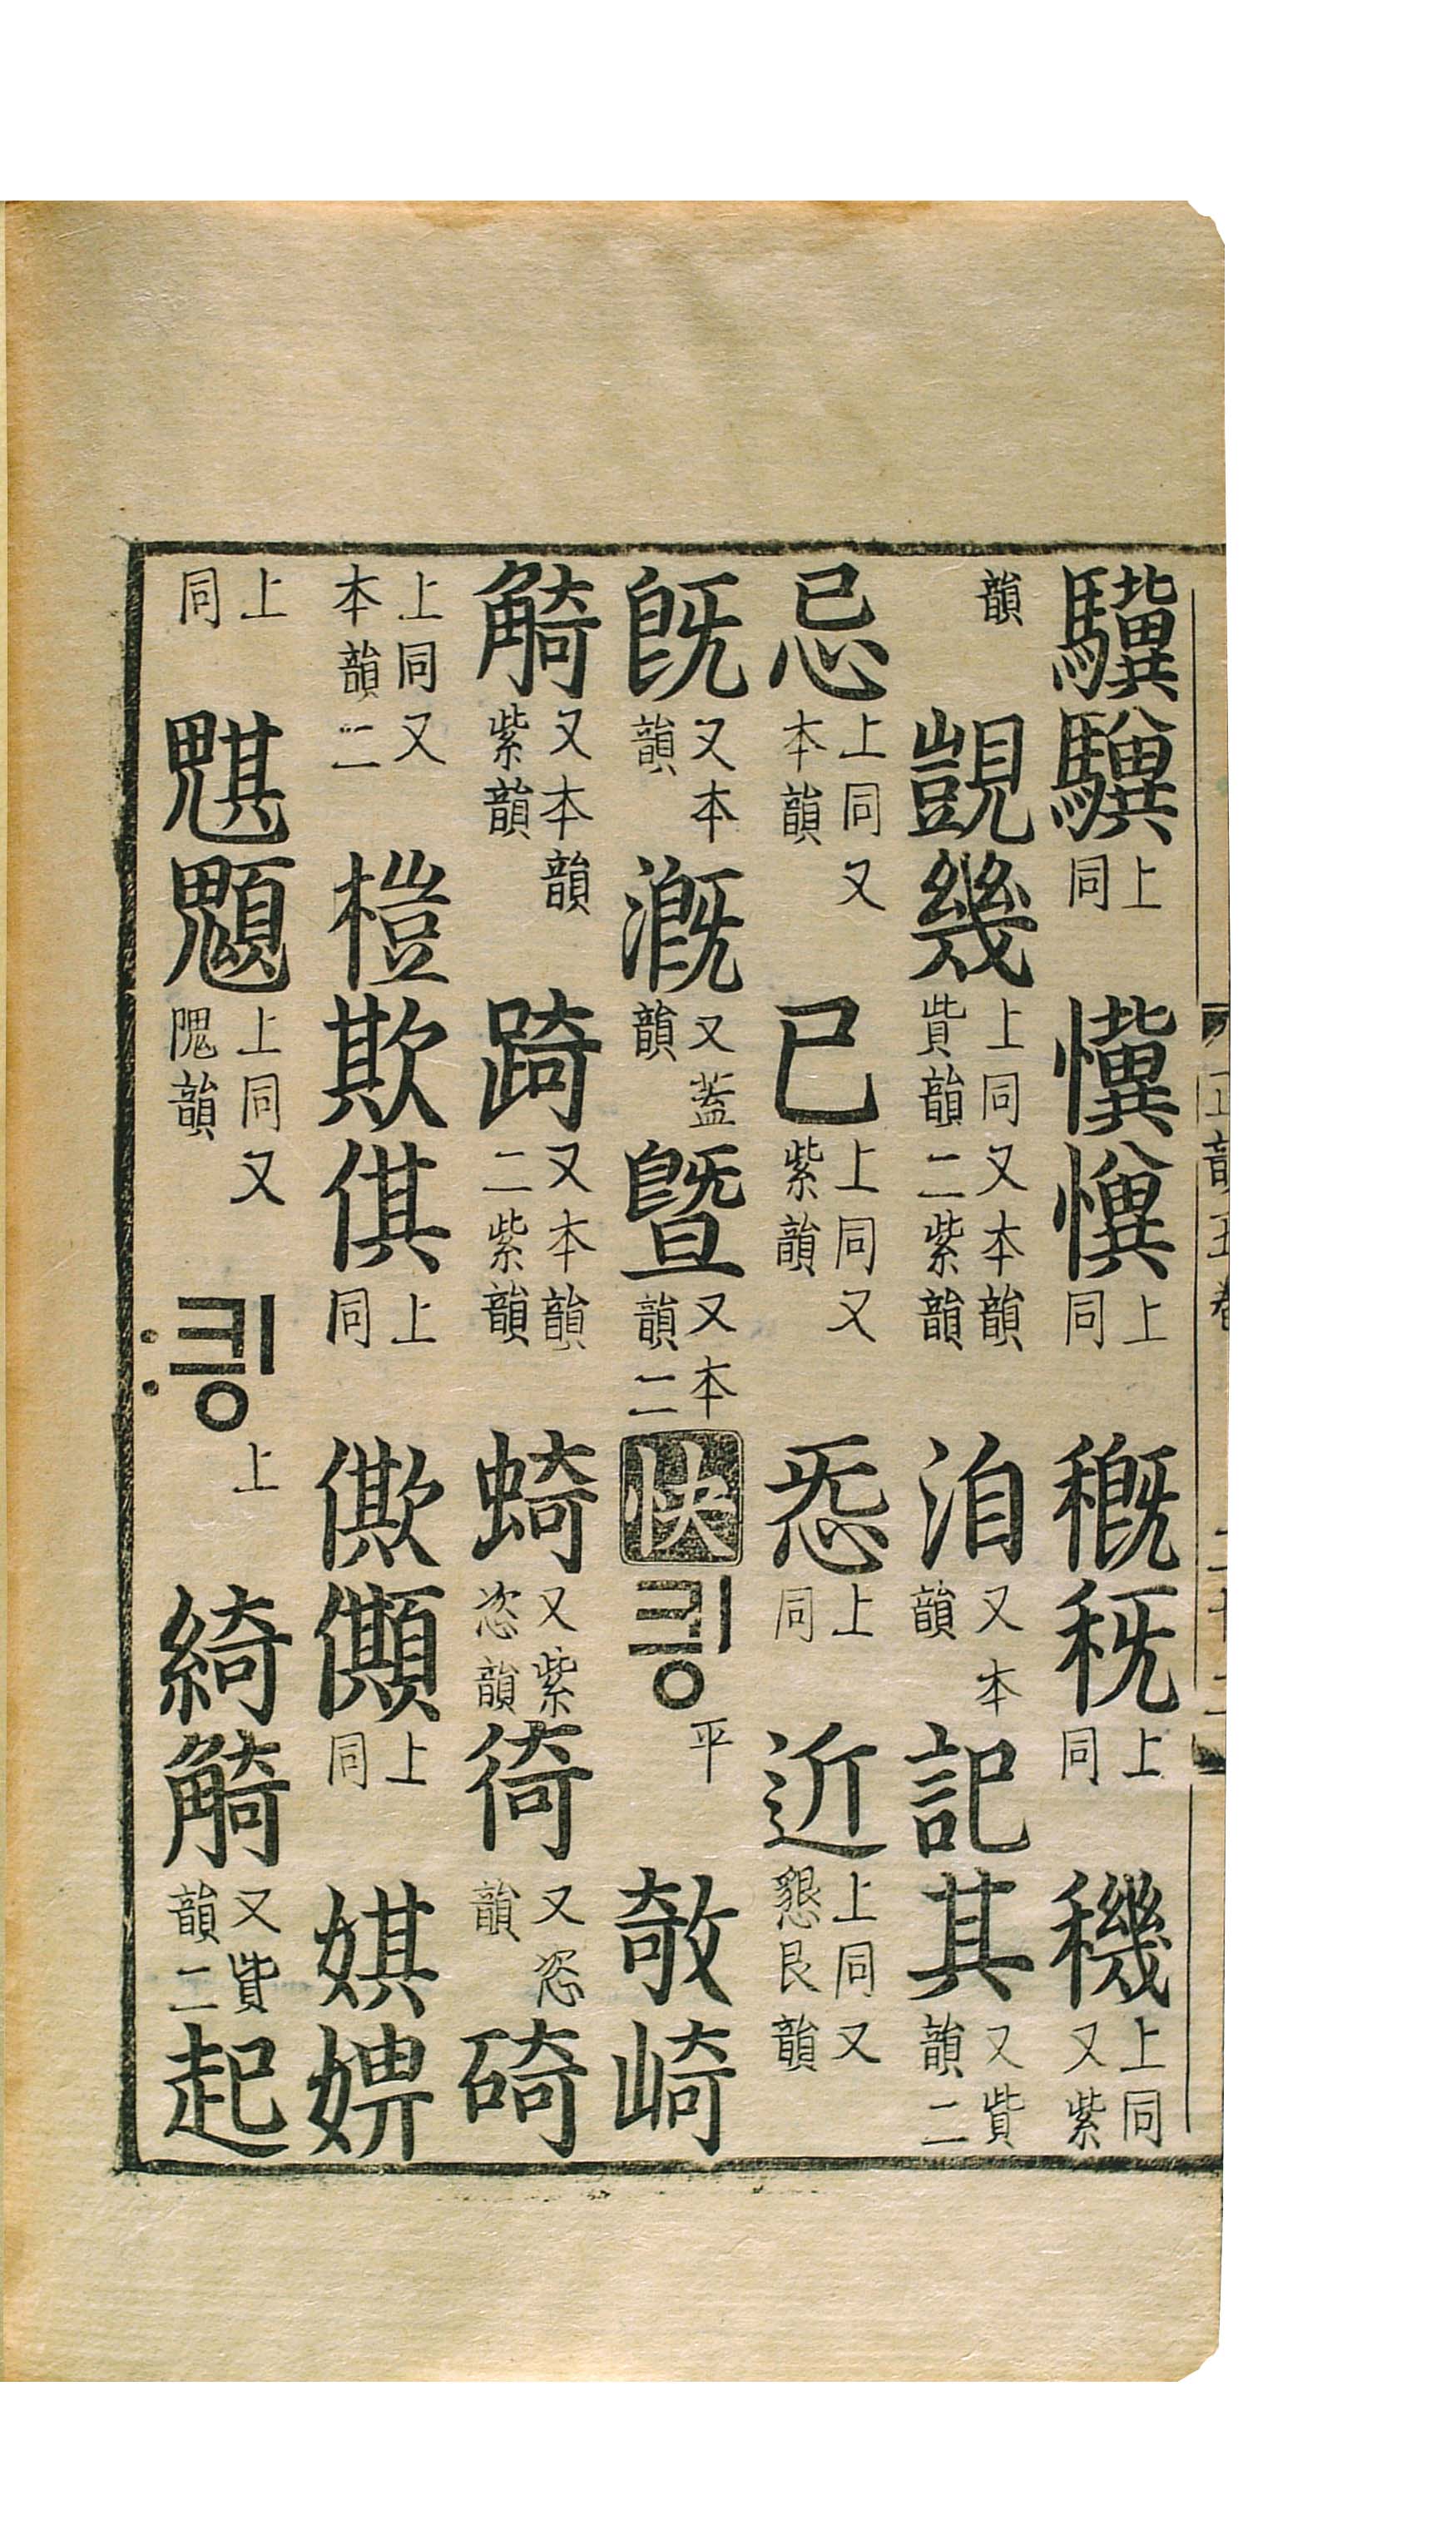 驥䮽上同懻㥍上同穊秜上同穖上同又紫
韻覬幾上同又本韻貲韻二紫韻洎又本韻記其又貲韻二
忌上同又本韻已上同又紫韻㤅上同近上同又懇艮韻
旣又本韻漑又蓋韻曁又本韻二快킈ᇰ平敧崎
觭又本韻紫韻踦又本韻二紫韻䗁又紫恣韻徛又恣韻碕
上同又本韻二榿欺倛上同僛䫥上同娸娉
上同䰴䫏上同又隗韻킈ᇰ上綺觭又貲韻二起